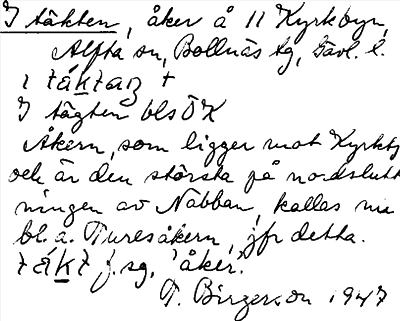 I täkten, åker å 11 Kyrkbyn,
Alfta sn, Bollnäs tg, Gävl. l.
I tägten blsÖK
Åkern, som ligger mot Kyrkby
och är den största på nordslutt
ningen av Nabban, kallas nu
bl. a. Turesåkern, jfr detta.
f. sg. 'åker'.
T. Birgerson 1947